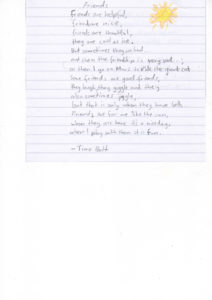 Friends
Friends are helpful,
friends are nice,
friends are thankful,
they are cool as ice.
But sometimes they are bad
and then the friendship is very sad,
so then I go on
love friends, are good friends,
they laugh, they giggle and they
also sometimes giggle,
but that is only when they have bells.
Friends are for me like the sun,
when they are here it's a nice day,
when I play with them it is fun.